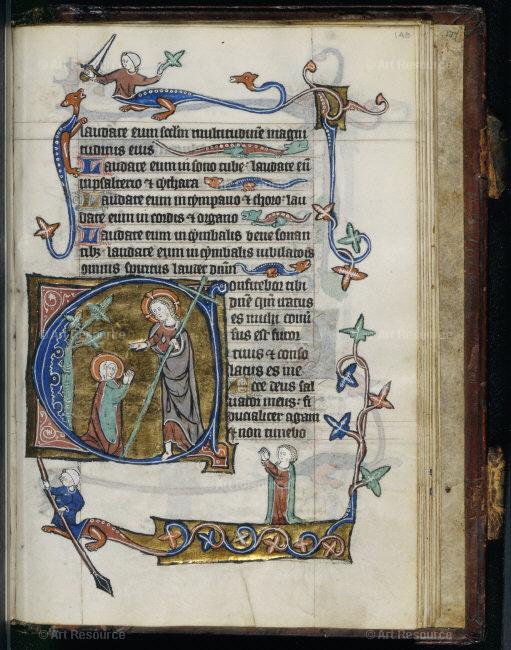 laudate eum scdm multitudinē magni
tudinis eius
Laudate eum in sono tube: laudate eū
in psalterio & cythara
Laudate eum in tympano & choro: lau
date eum in cordis & organo
Laudate eum in cymbalis bene sonan
tibꝫ: laudate eum in cymbalis iubilationis
omnis spiritus laudet dnm
Confitebor tibi
dnē qm iratus
es michi
furor
tuus & conso
latus es me
Ecce deus sal
uator meus: fi
ducialiter agam
& non timebo
© Art Resource
© Art Resource
© Art Resource
© Art Resource